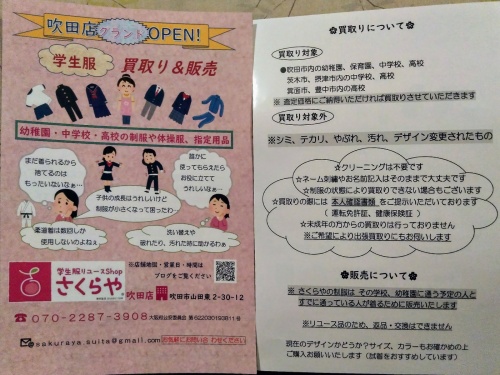 吹田店グランドOPEN!
学生服 買取り＆販売
幼稚園・中学校・高校の制服や体操服、指定用品
まだ着られるから
捨てるのは
もったいないなぁ…
誰かに
使ってもらえたら
お役に立てて
うれしいなぁ…
子供の成長はうれしいけど
制服が小さくなって困ったわ…
柔道着は数回しか
使用しないのよねぇ
洗い替えや
破れたり、汚れた時に助かるわぁ
学生服リユースShop
さくらや
吹田店
※店舗地図・営業日・時間は
ブログをご覧ください
吹田市山田東2-30-12
☎070-2287-3908
sakuraya.suita@gmail.com お気軽にお問い合わせください
✿買取りについて✿
買取り対象
●吹田市内の幼稚園、保育園、中学校、高校
茨木市、摂津市内の中学校、高校
箕面市、豊中市内の高校
※査定価格にご納得いただければ買取りさせていただきます
買取り対象外
※シミ、テカリ、やぶれ、汚れ、デザイン変更されたもの
☆クリーニングは不要です
☆ネーム刺繍やお名前記入はそのままで大丈夫です
☆制服の状態により買取りできない場合もございます
☆買取りの際には 本人確認書類 をご提示いただいております
（ 運転免許証、健康保険証 ）
☆未成年の方からの買取りは行っておりません
※ご希望により出張買取りにもお伺いします
✿販売について✿
※ さくらやの制服は その学校、幼稚園に通う予定の人と
すでに通っている人が着るために販売いたします
※リユース品のため、返品・交換はできません
現在のデザインかどうか？サイズ、カラーもお確かめの上
ご購入お願いいたします（試着をおすすめしています）